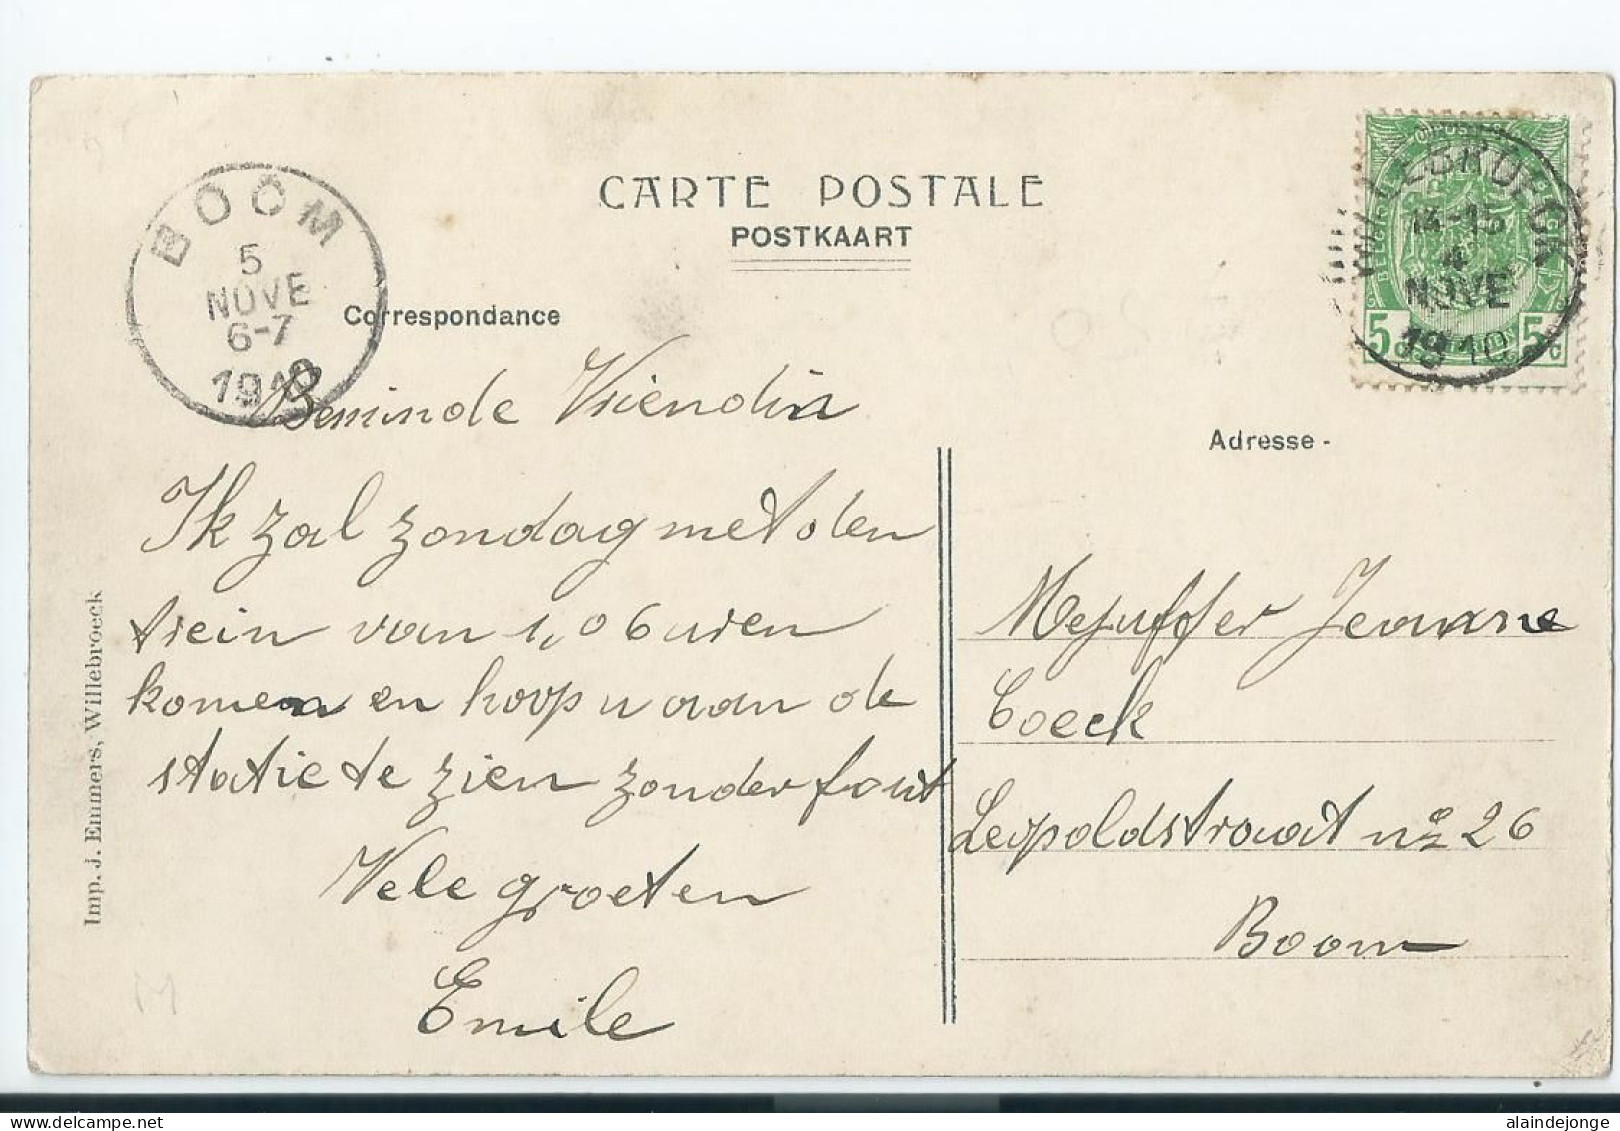 CARTE POSTALE
POSTKAART
BOOM
5
NOVE
6-7
1910
WILLEBROECK
14-15
4
NOVE
1910
5c 5c
Correspondance
Beminde Vriendin
Ik zal zondag met den
trein van 1,06 uren
komen en hoop u aan de
statie te zien zonder fout
Vele groeten
Emile
Adresse -
Mejuffer Jeanne
Coeck
Leopoldstraat nº 26
Boom
Imp. J. Emmers, Willebroeck
M
alaindejonge